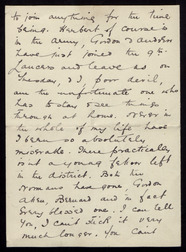 to join anything for the time
being. Herbert of course is
in the Army, Gordon & Andrew
have just joined the 9th
Lancers and leave us on
Thursday, I, poor devil,
am the unfortunate one who
has to stay & see things
through at home. Never in
the whole of my life have
I been so absolutely
miserable. There practically
is not a young fellow left
in the district. Both the
Normans have gone, Gordon
Aben, Bernard and in fact
every blessed one. I can tell
you, I can't stick it very
much longer. You can't